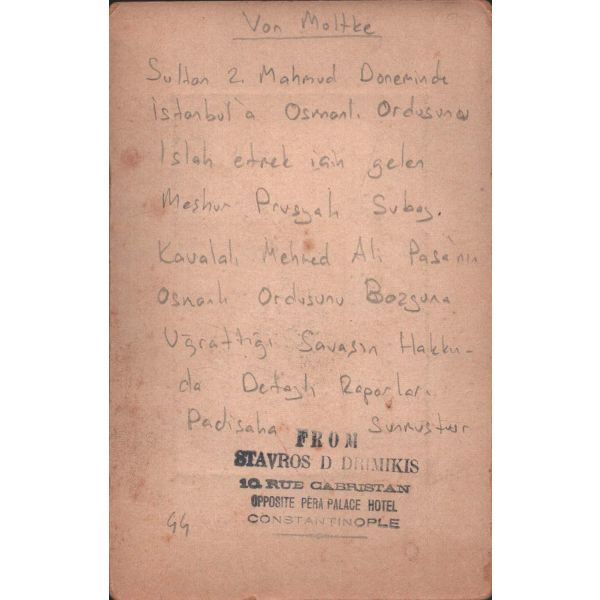 Von Moltke
Sultan 2. Mahmud Doneminde
İstanbul'a Osmanlı Ordusunu
Islah etmek için gelen
Meshur Prusyalı Subay.
Kavalalı Mehmed Ali Pasa'nın
Osmanlı Ordusunu Bozguna
Uğrattığı Savasın Hakkın-
da Detaylı Raporları
Padisaha Sunmustur
FROM
STAVROS D DRIMIKIS
10. RUE CABRISTAN
OPPOSITE PERA PALACE HOTEL
CONSTANTINOPLE
GG